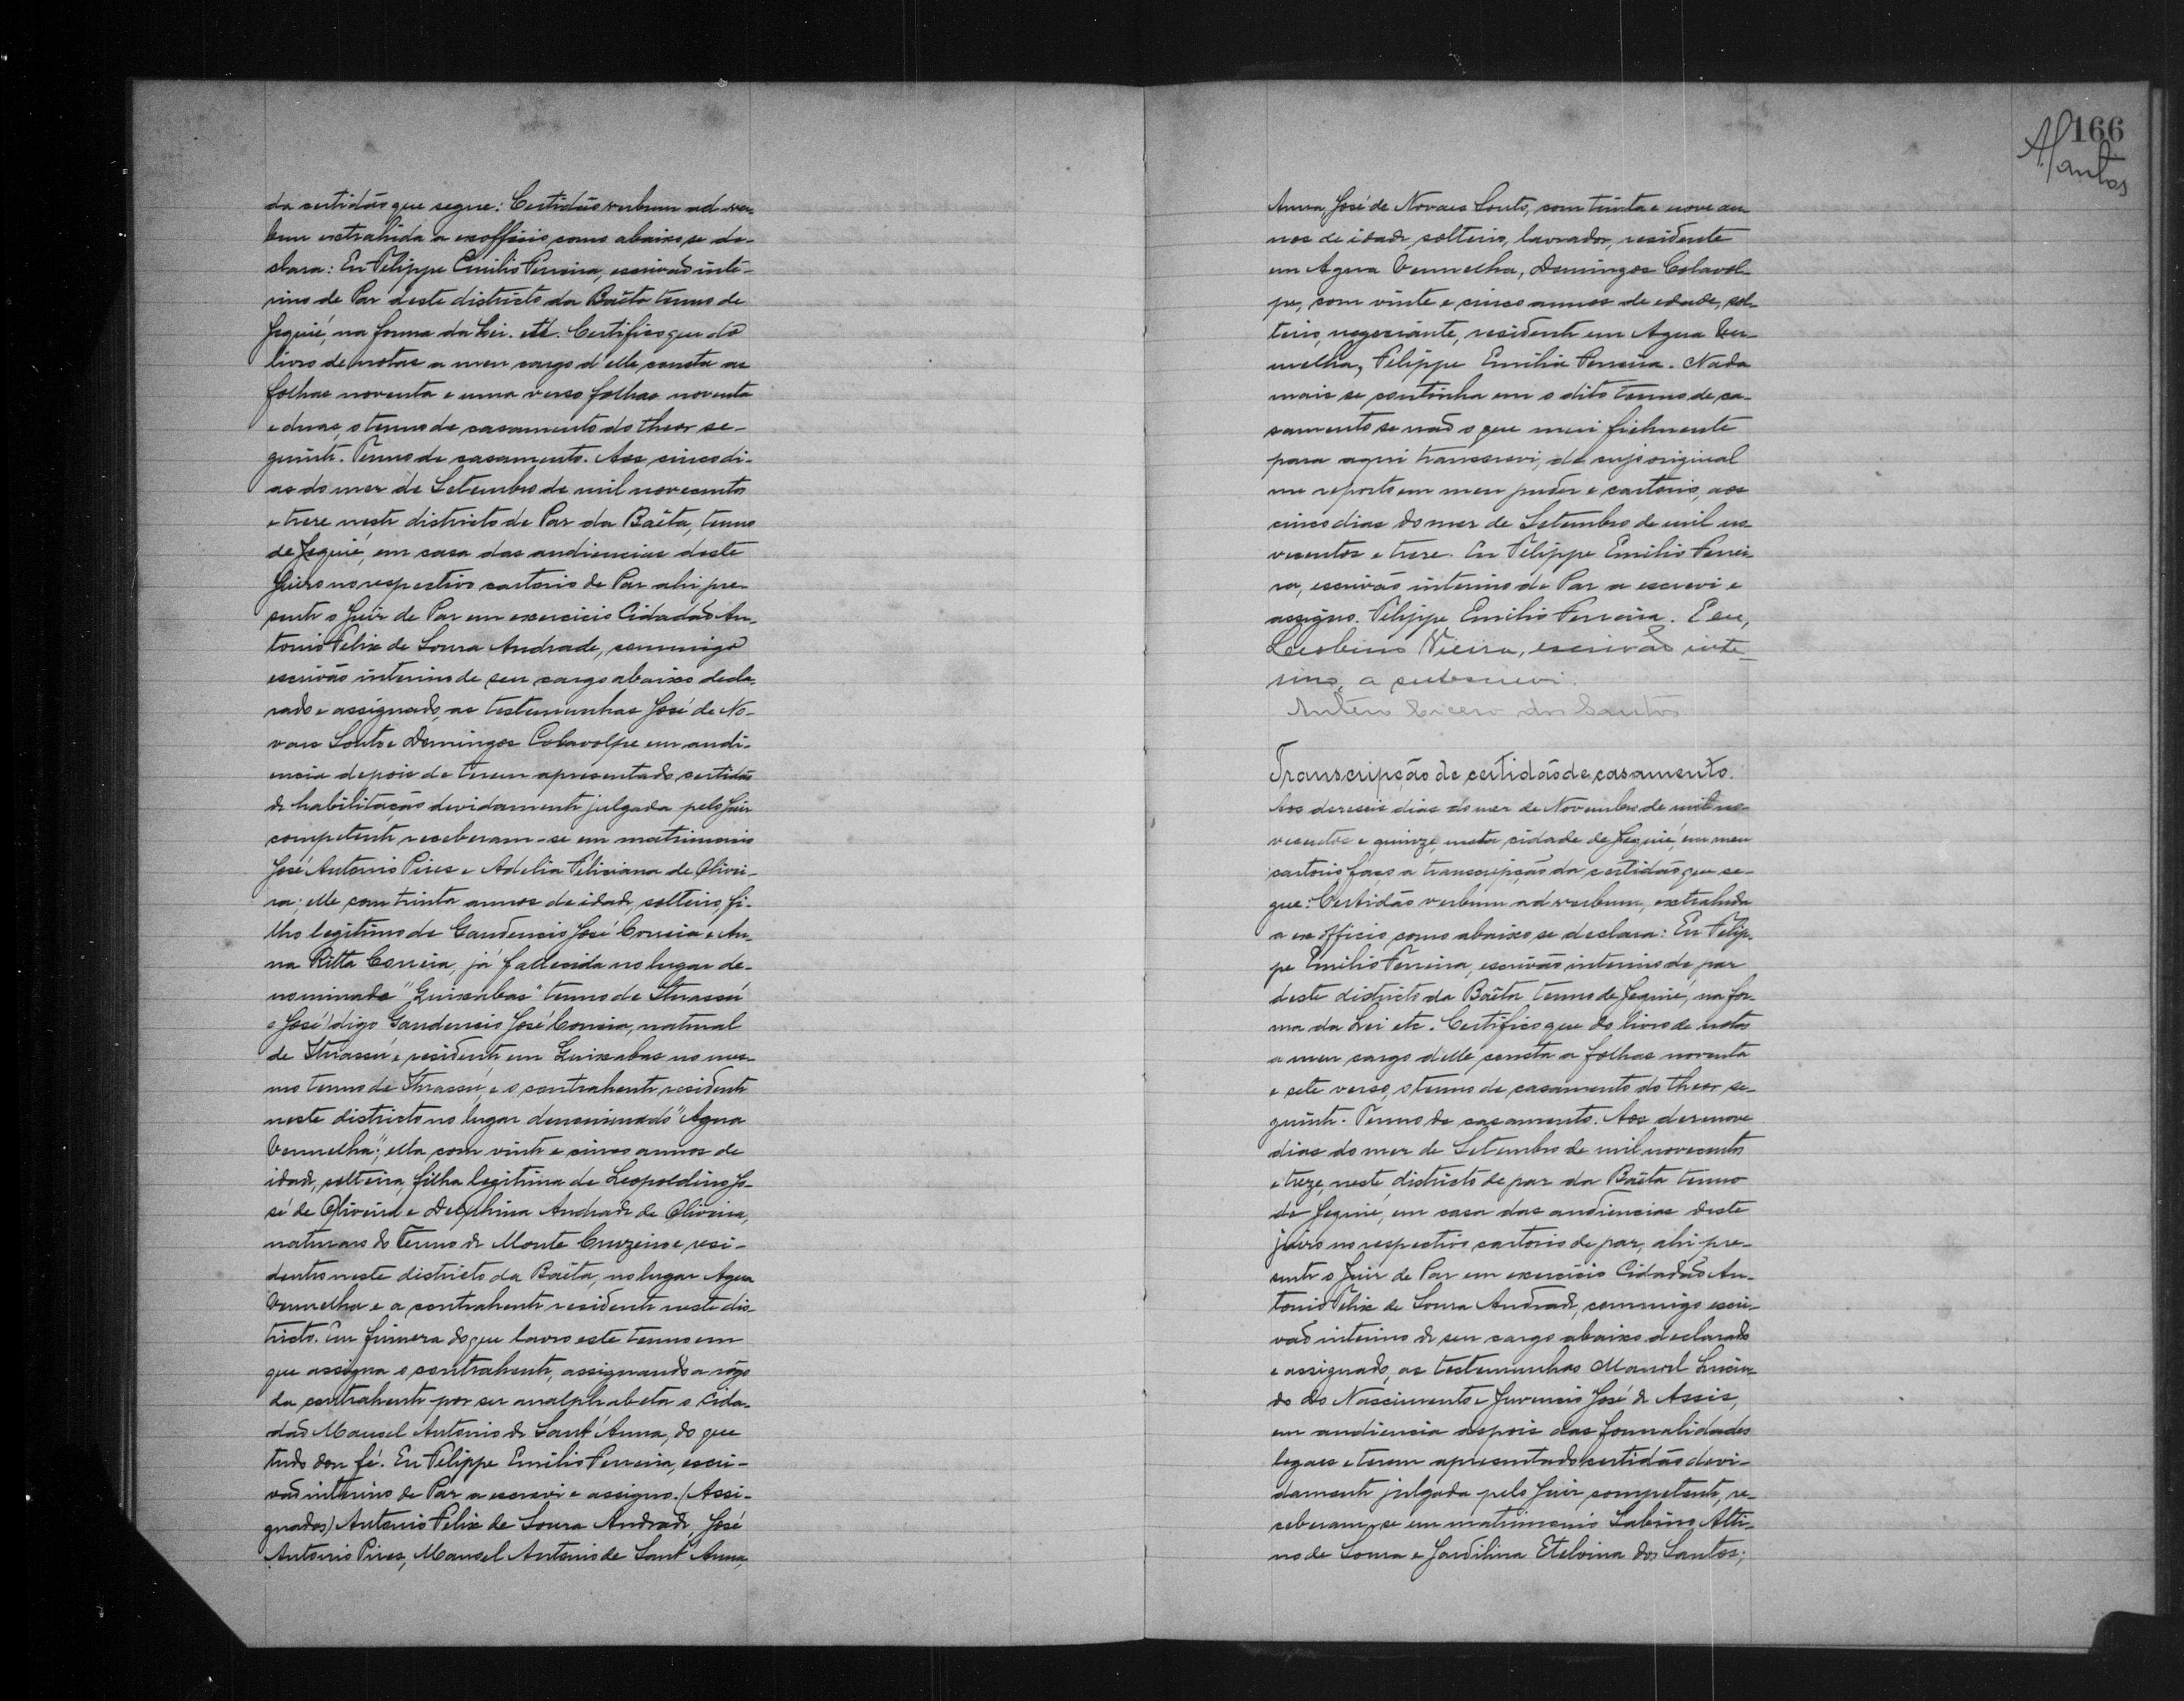 da certidão que segue: Certidão verbum ad ver-
bum extrahida a exofficio como abaixo se de-
clara: Eu Felippe Emilio Ferreira, escrivão inte-
rino de Paz deste districto da Baêta termo de
Jequié, na forma da Lei. etc. Certifico que do
livro de notas a meu cargo d'elle consta as
folhas noventa e uma verso folhas noventa
e duas, o termo de casamento do theor se-
guinte. Termo de casamento. Aos cinco di-
as do mez de Setembro de mil novecentos
e treze neste districto de Paz da Baêta, termo
de Jequié, em casa das audiencias deste
Juizo no respectivo cartorio de Paz ahi pre-
sente o Juiz de Paz em exercicio Cidadão An-
tonio Felix de Souza Andrade, commigo
escrivão interino de seu cargo abaixo decla-
rado e assignado, as testemunhas José de No-
vaes Souto e Domingos Colavolpe em audi-
encia depois de terem apresentado certidão
de habilitação devidamente julgada pelo Juiz
competente receberam-se em matrimonio
José Antonio Pires e Adelia Feliciana de Olivei-
ra; elle com trinta annos de idade, solteiro, fi-
lho legitimo de Gaudencio José Correia e An-
na Ritta Correia, já fallecida no lugar de-
nominado "Quixabas" termo de Ituassú
e José (digo Gaudencio José Correia, natural
de Ituassú e residente em Quixabas no mes-
mo termo de Ituassú, e o contrahente residente
neste districto no lugar denominado "Agua
Vermelha"; ella com vinte e cinco annos de
idade, solteira, filha legitima de Leopoldino Jo-
sé de Oliveira e Delphina Andrade de Oliveira,
naturaes do Termo de Monte Cruzeiro e resi-
dentes neste districto da Baêta, no lugar Agua
Vermelha e a contrahente residente neste dis-
tricto. Em firmeza do que lavro este termo em
que assigna o contrahente, assignando a rôgo
da contrahente por ser analphabeta o Cida-
dão Manoel Antonio de Sant'Anna, do que
tudo dou fé. Eu Felippe Emilio Ferreira, escri-
vão interino de Paz a escrevi e assigno. (Assi-
gnados) Antonio Felix de Souza Andrade, José
Antonio Pires, Manoel Antonio de Sant'Anna,
166
ASantos
Anna, José de Novaes Souto, com trinta e nove an-
nos de idade, solteiro, lavrador, residente
em Agua Vermelha, Domingos Colavol-
pe, com vinte e cinco annos de edade, sol-
teiro, negociante, residente em Agua Ver-
melha, Felippe Emilio Ferreira. Nada
mais se continha em o dito termo de ca-
samento se não o que mui fielmente
para aqui transcrevi, de cujo original
me reporto em meu puder e cartorio, aos
cinco dias do mez de Setembro de mil no-
vecentos e treze. Eu Felippe Emilio Ferrei-
ra, escrivão interino de Paz a escrevi e
assigno. Felippe Emilio Ferreira. E eu,
Vieira, escrivão inte-
rino, a subscrevi.
Antero Cicero dos Santos
Transcripção de certidão de casamento.
Aos dezeseis dias do mez de Novembro de mil no-
vecentos e quinze, nesta cidade de Jequié, em meu
cartorio faço a transcripção da certidão que se-
gue: Certidão verbum ad verbum, extrahida
a ex officio, como abaixo se declara: Eu Felip-
pe Emilio Ferreira, escrivão interino de paz
deste districto da Baêta termo de Jequié, na for-
ma da Lei etc. Certifico que do livro de notas
a meu cargo delle consta a folhas noventa
e sete verso, o termo de casamento do theor se-
guinte. Termo de casamento. Aos dezenove
dias do mez de Setembro de mil novecentos
e treze, neste districto de paz da Baêta termo
de Jequié, em casa das audiencias deste
juizo no respectivo cartorio de paz, ahi pre-
sente o Juiz de Paz em exercicio Cidadão An-
tonio Felix de Souza Andrade, commigo escri-
vão interino de seu cargo abaixo declarado
e assignado, as testemunhas Manoel Lucin-
do do Nascimento e Juvencio José de Assis,
em audiencia depois das formalidades
legaes e terem apresentado certidão devi-
damente julgada pelo Juiz competente, re-
ceberam-se em matrimonio Sabino Alti-
no de Souza e Jardilina Etelvina dos Santos;